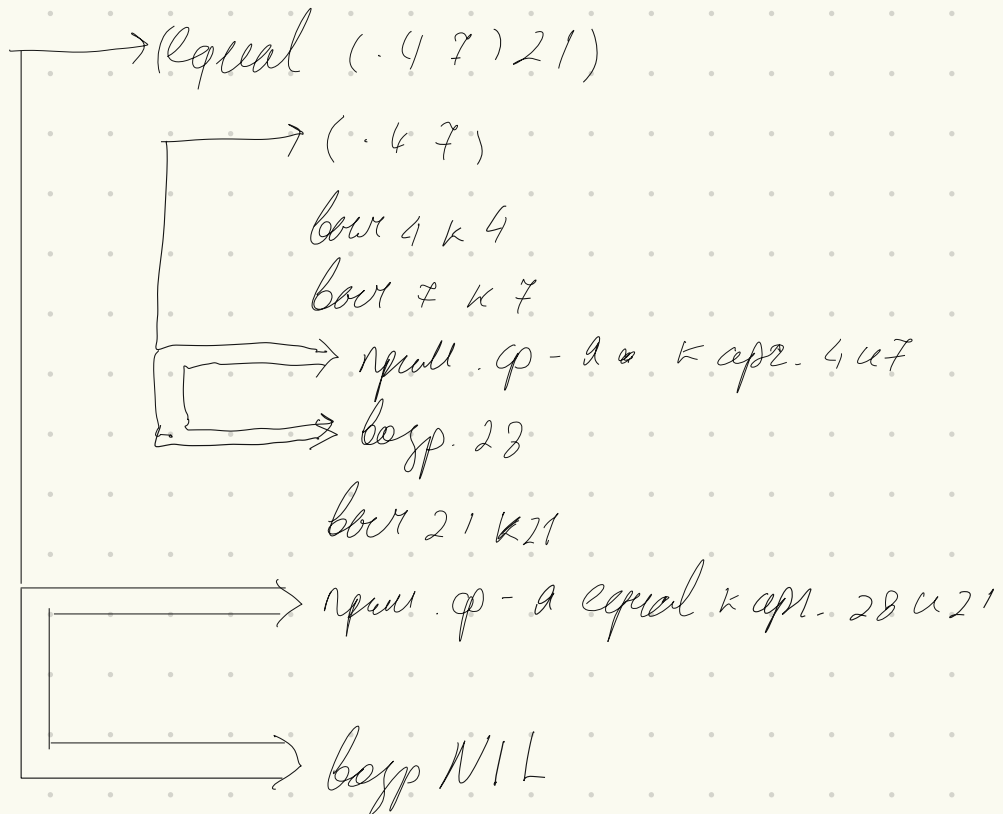 (equal (· 4 7) 21)
(· 4 7)
выч 4 к 4
выч 7 к 7
прим. ф-я · к арг. 4 и 7
возр. 28
выч 21 к 21
прим. ф-я equal к арг. 28 и 21
возр NIL